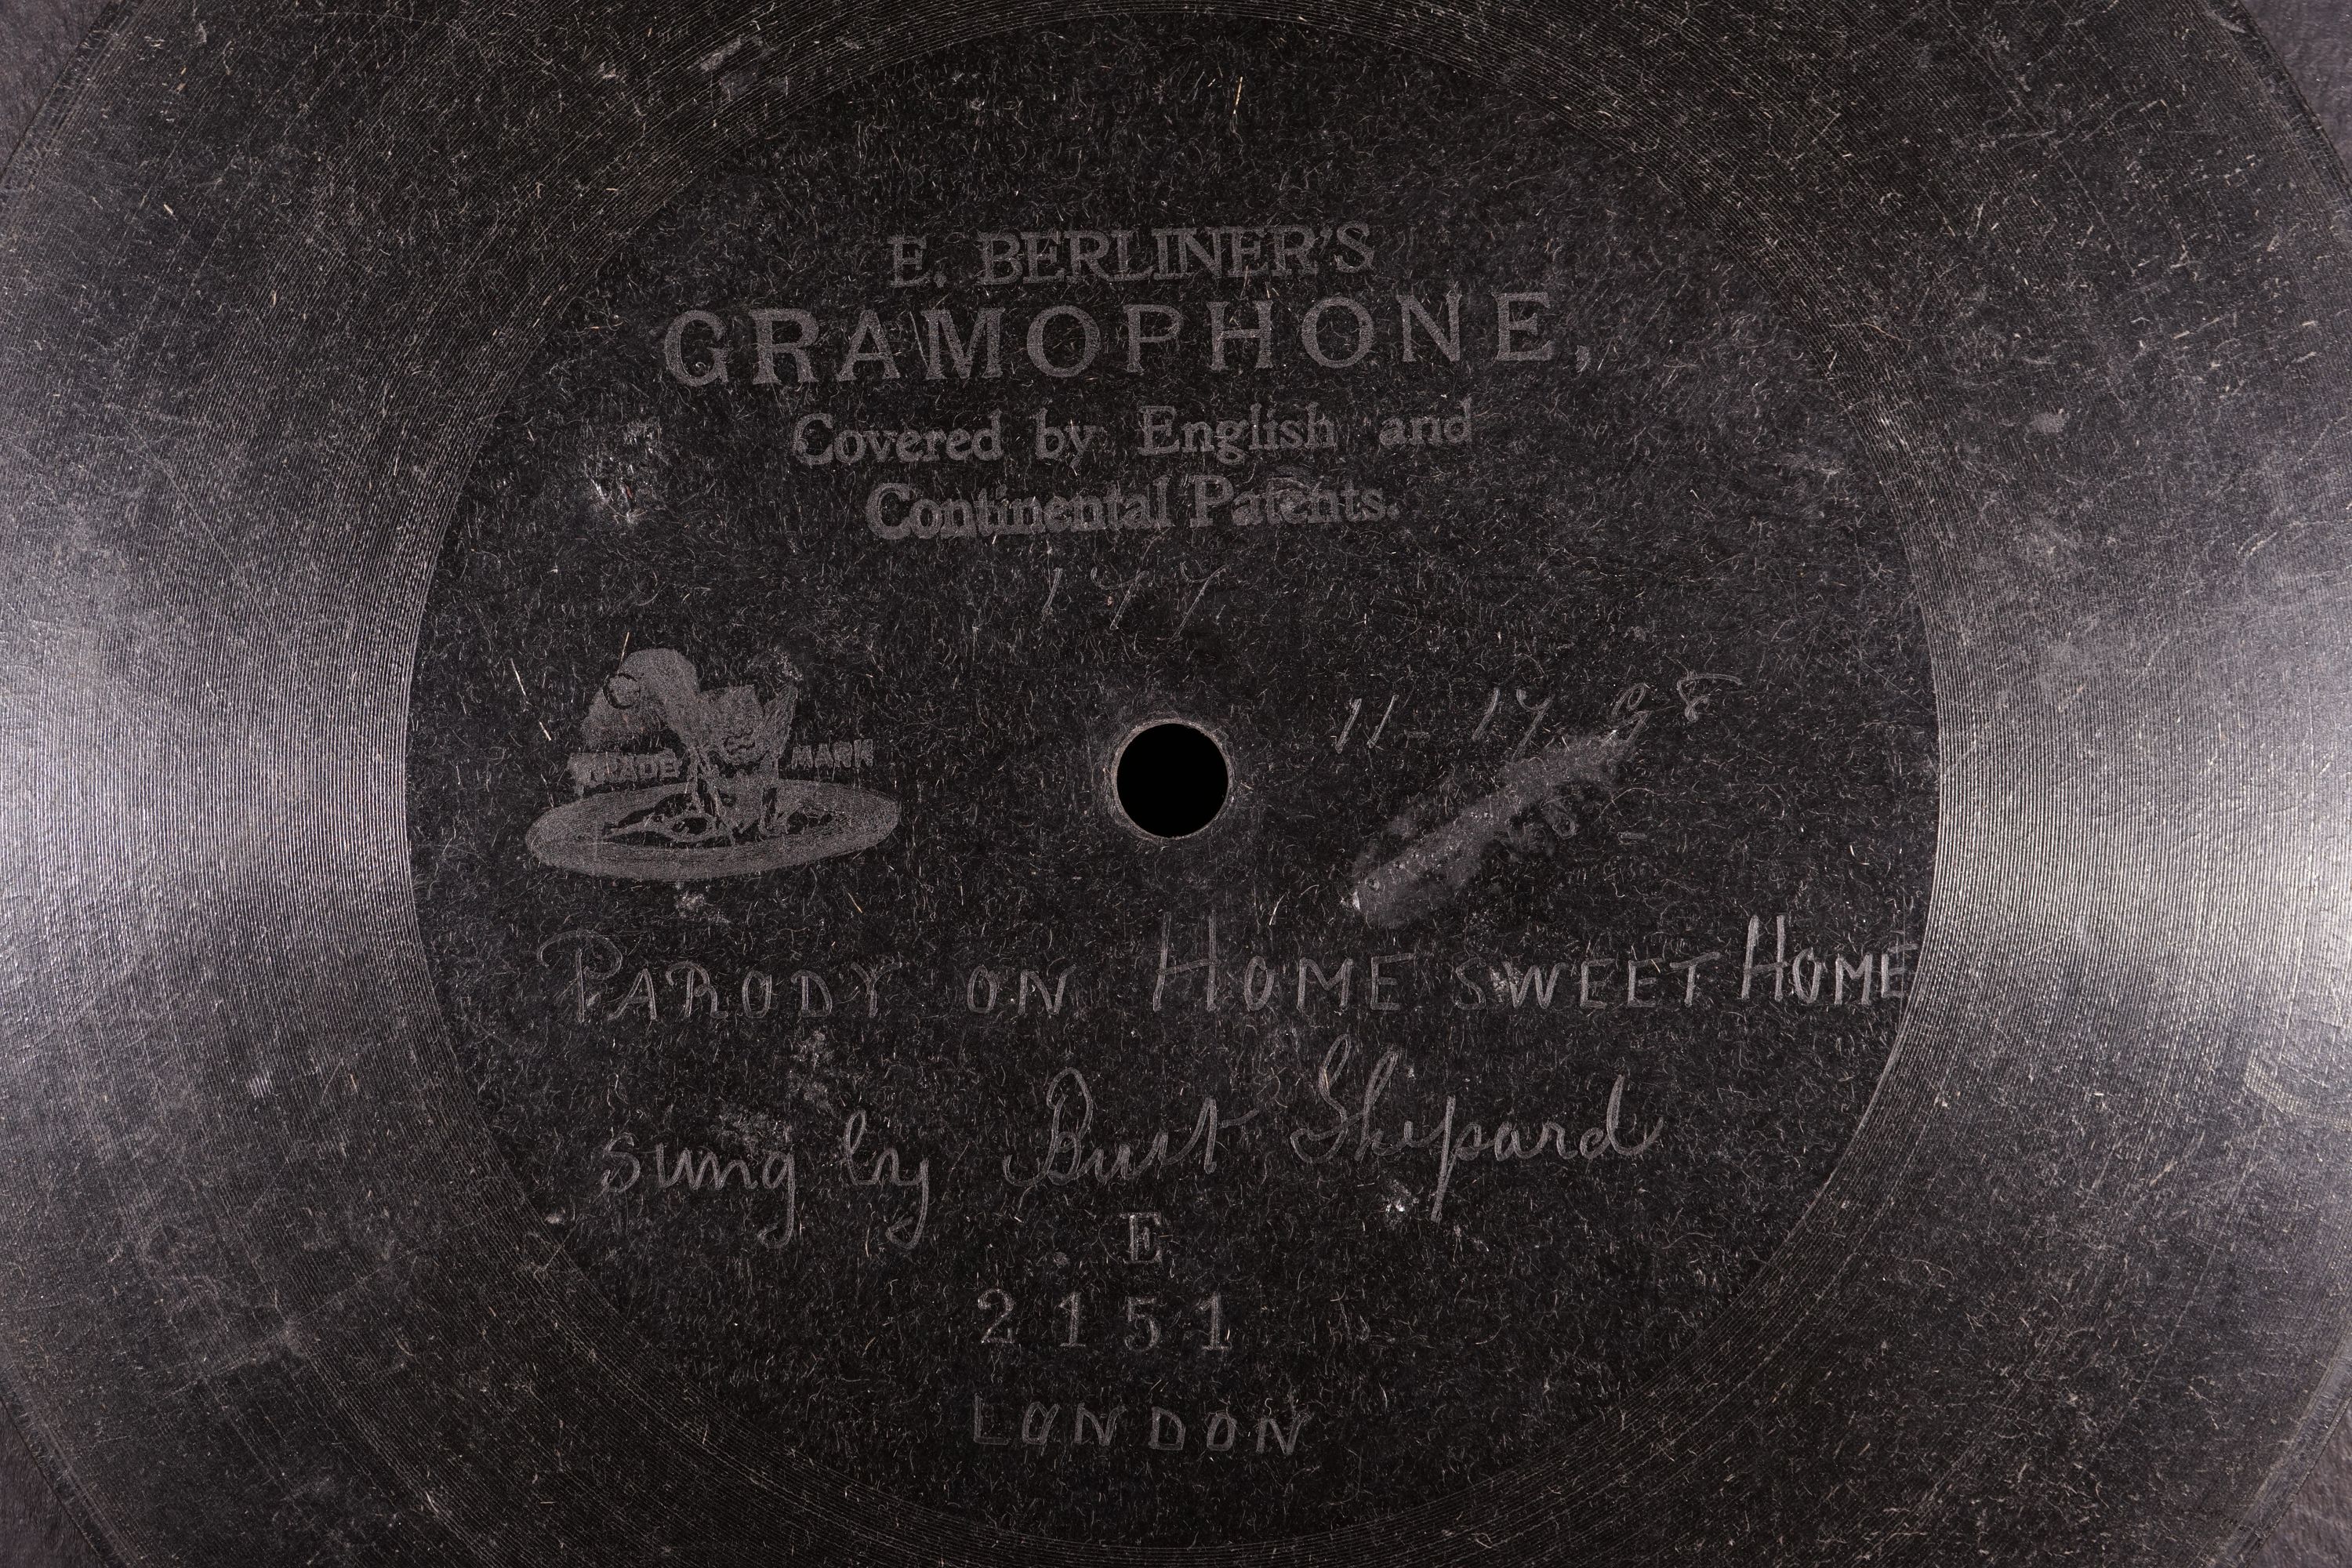 E. BERLINER'S
GRAMOPHONE,
Covered by English and
Continental Patents.
TRADE MARK
11-17 98
PARODY ON HOME SWEET HOME
sung by Burt Shepard
E
2151
LONDON